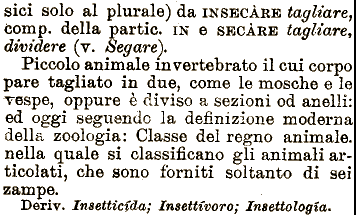 sici solo al plurale) da INSECÀRE tagliare,
comp. della partic. IN e SECÀRE tagliare,
dividere (v. Segare).
Piccolo animale invertebrato il cui corpo
pare tagliato in due, come le mosche e le
vespe, oppure è diviso a sezioni od anelli:
ed oggi seguendo la definizione moderna
della zoologia: Classe del regno animale.
nella quale si classificano gli animali ar-
ticolati, che sono forniti soltanto di sei
zampe.
Deriv. Insetticída; Insettívoro; Insettología.